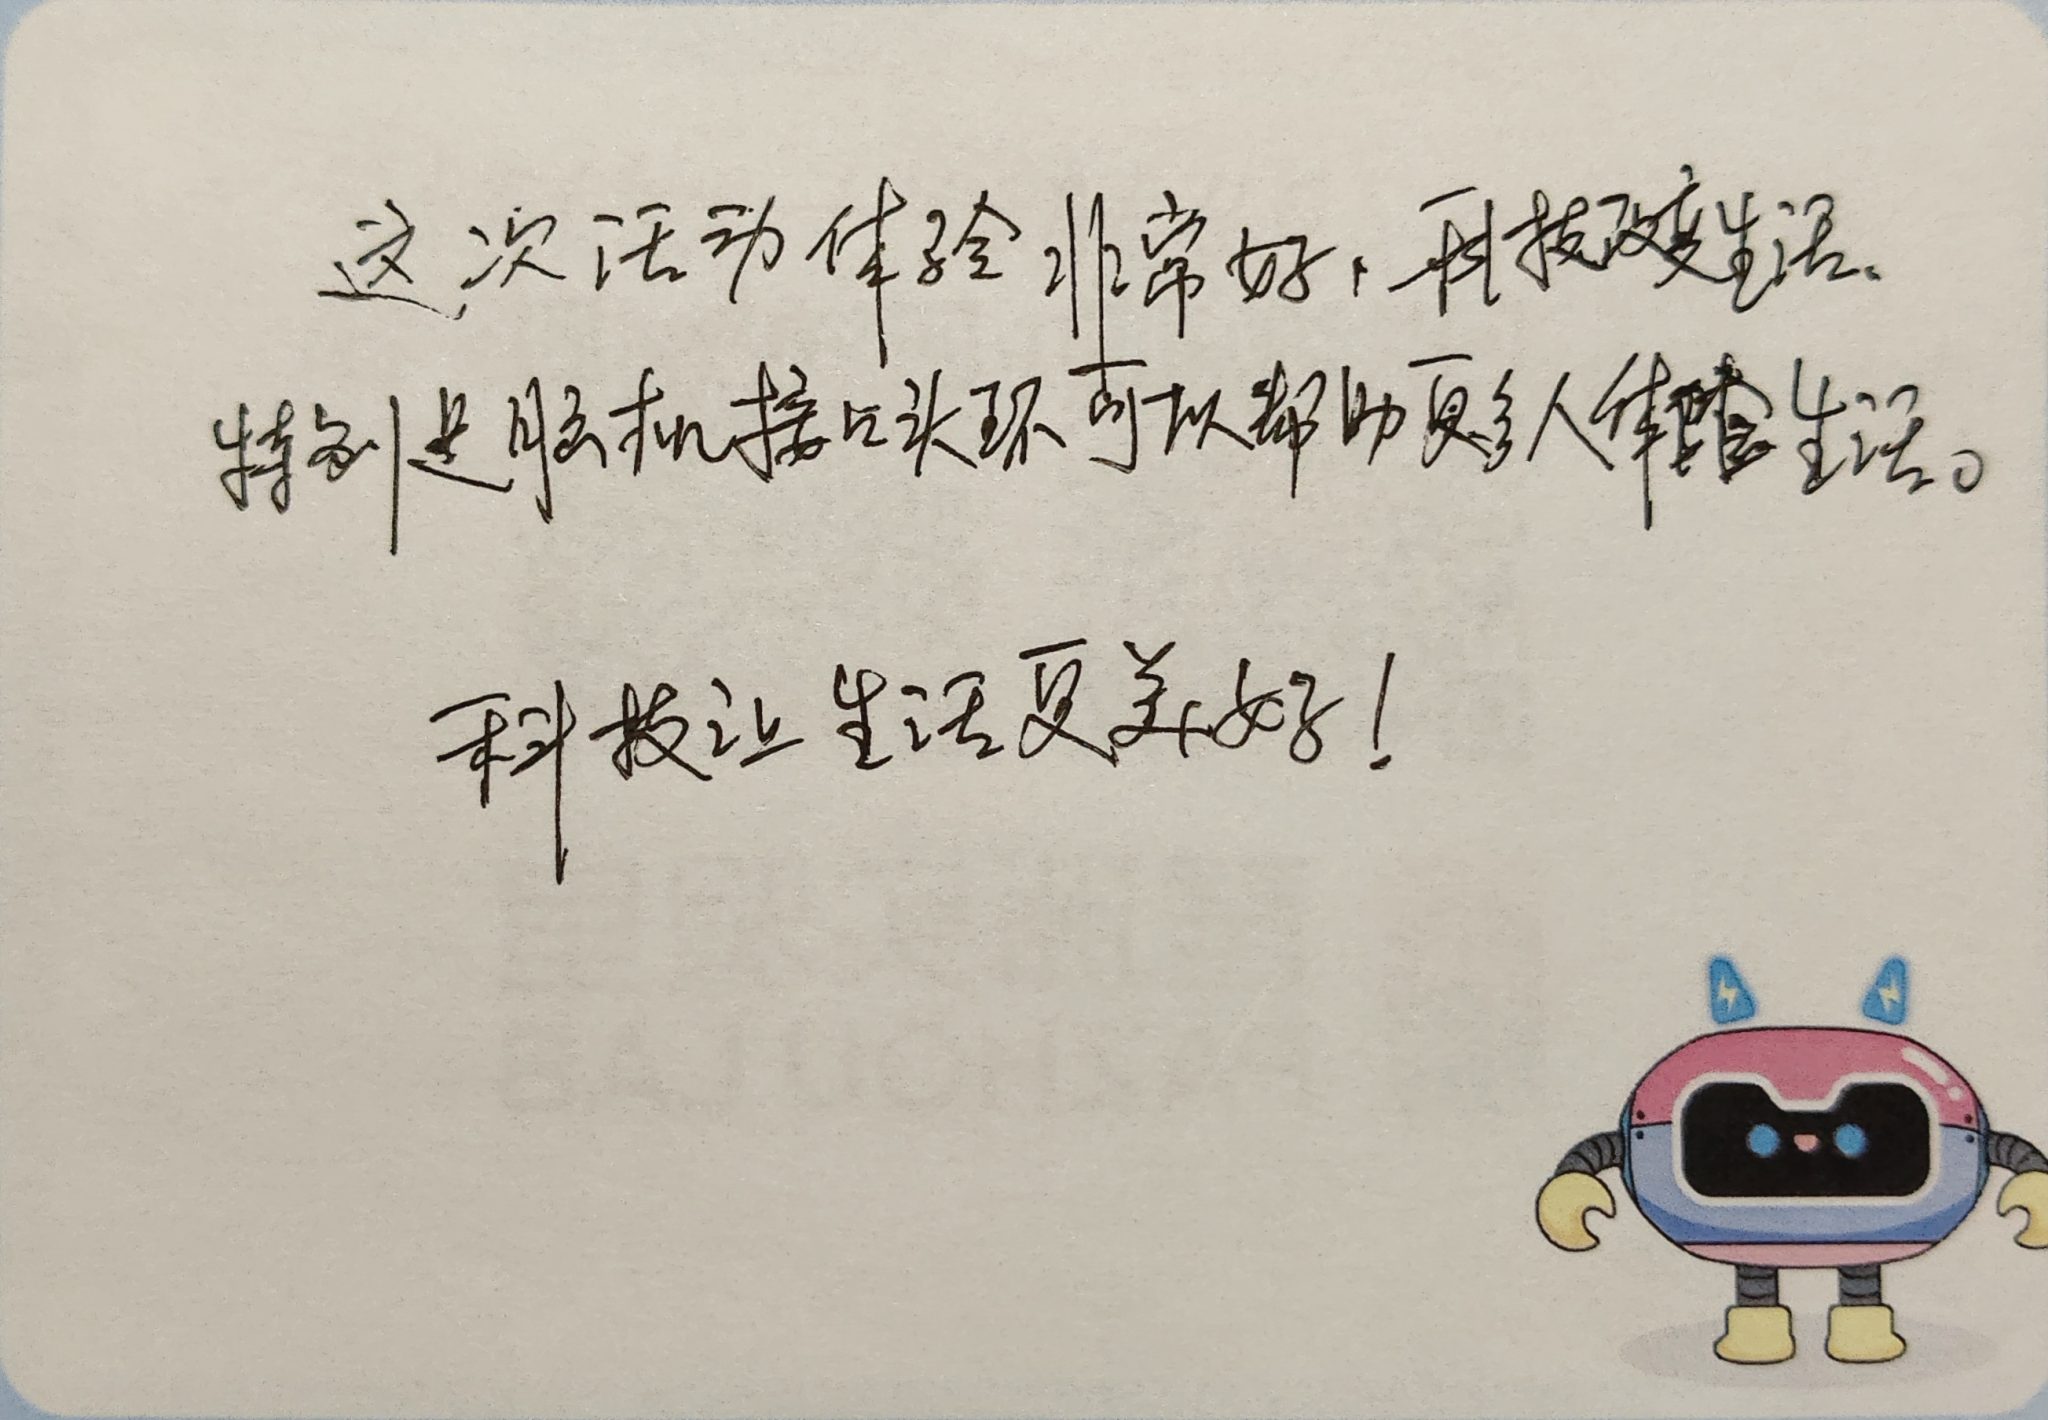 这次活动体验非常好，科技改变生活、
特别是脑机接口头环可以帮助更多人体验生活。
科技让生活更美好！